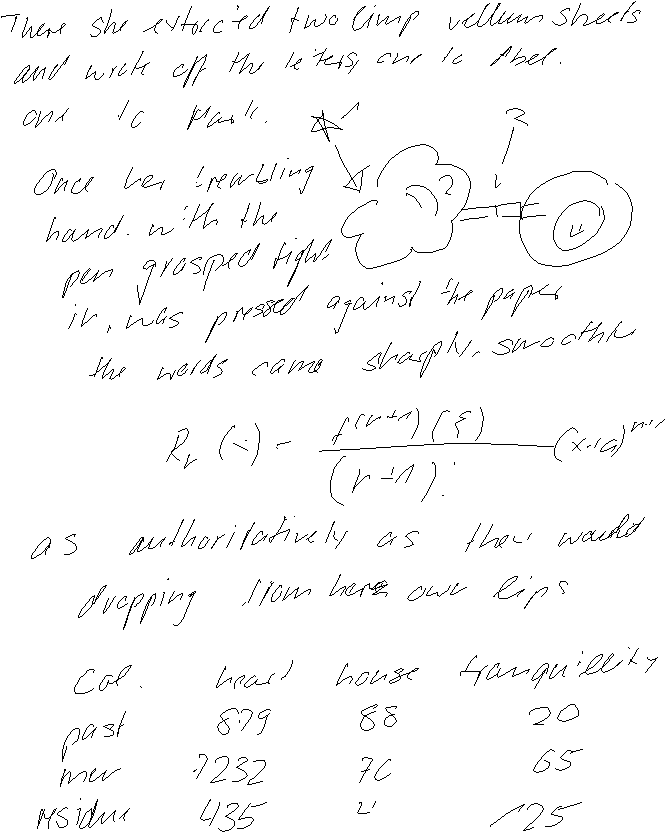 There she extorcted two limp vellum sheets
and wrote off the leters, one to Abel.
one to Mark.
1
2
2
4
Once her trembling
hand. with the
pen grasped tight
in, was pressed against the paper
the words came sharply, smoothly
R_n (x) = f^(n+1) (ξ) / (n+1)! (x-a)^n+1
as authoritatively as they would
dropping from her own lips
Col. heart house tranquillity
past 879 88 20
mer 7232 70 65
residue 435 4 125